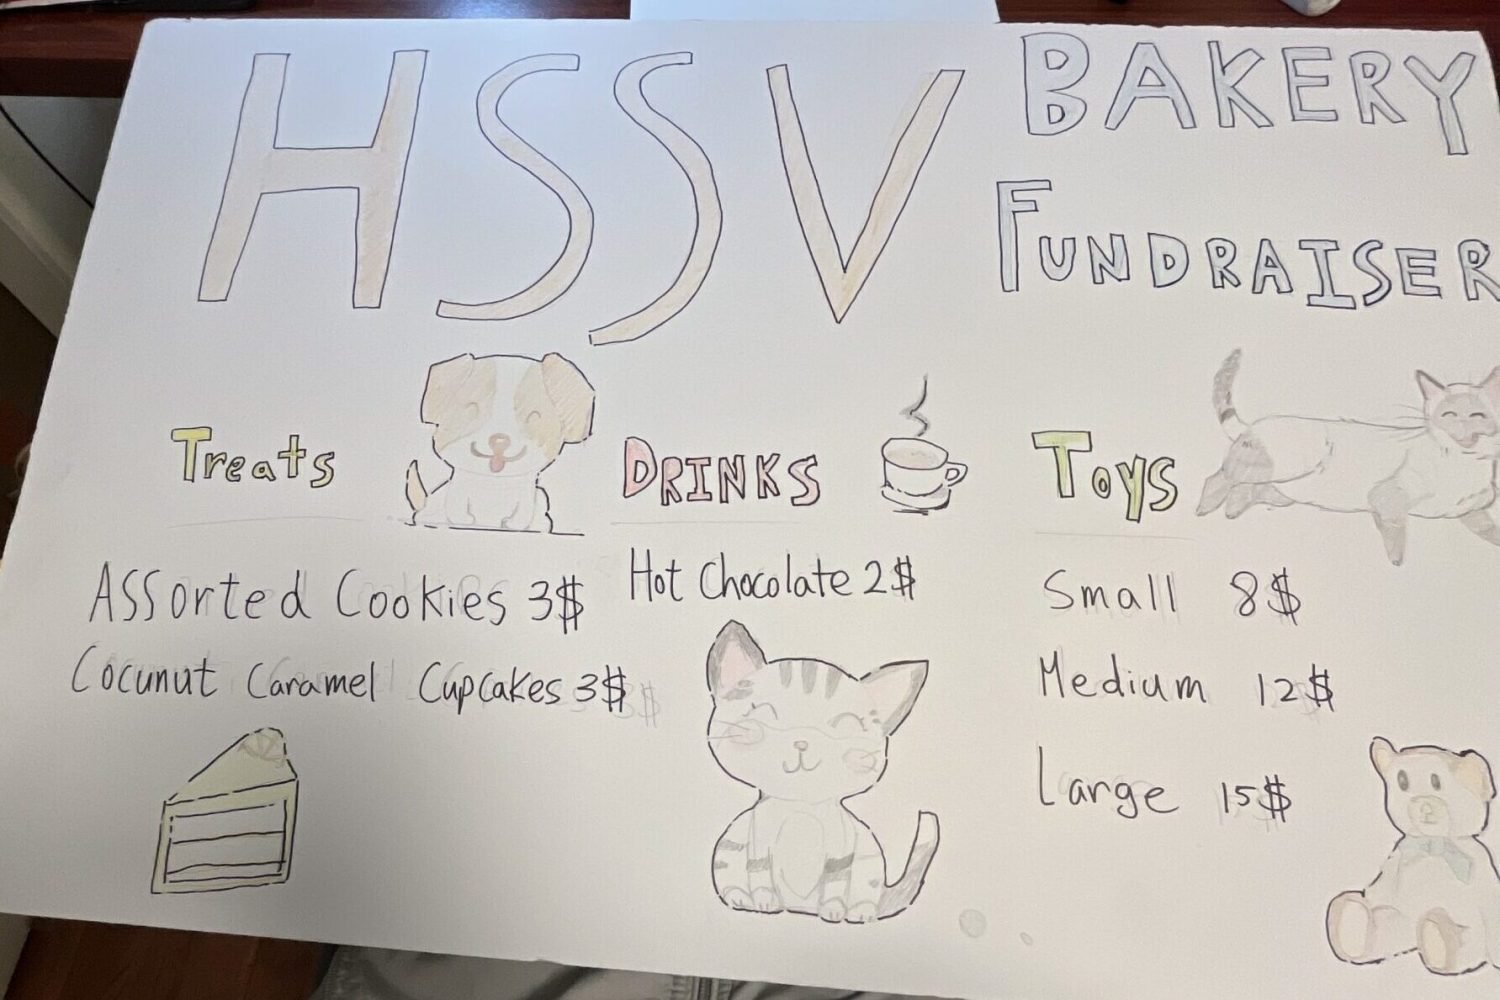 HSSV
BAKERY
FUNDRAISER
Treats
DRINKS
Toys
Assorted Cookies 3$
Cocunut Caramel Cupcakes 3$
Hot Chocolate 2$
Small 8$
Medium 12$
Large 15$